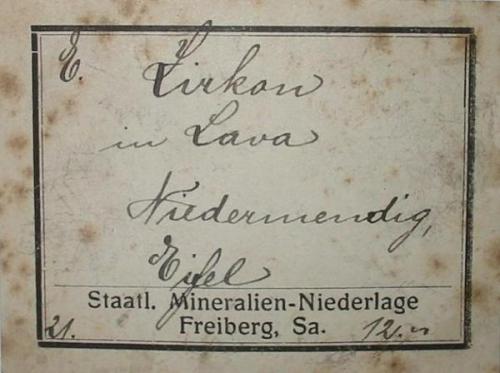 E. Zirkon
in Lava
Niedermendig,
Eifel
Staatl. Mineralien-Niederlage
Freiberg, Sa.
21. 12.